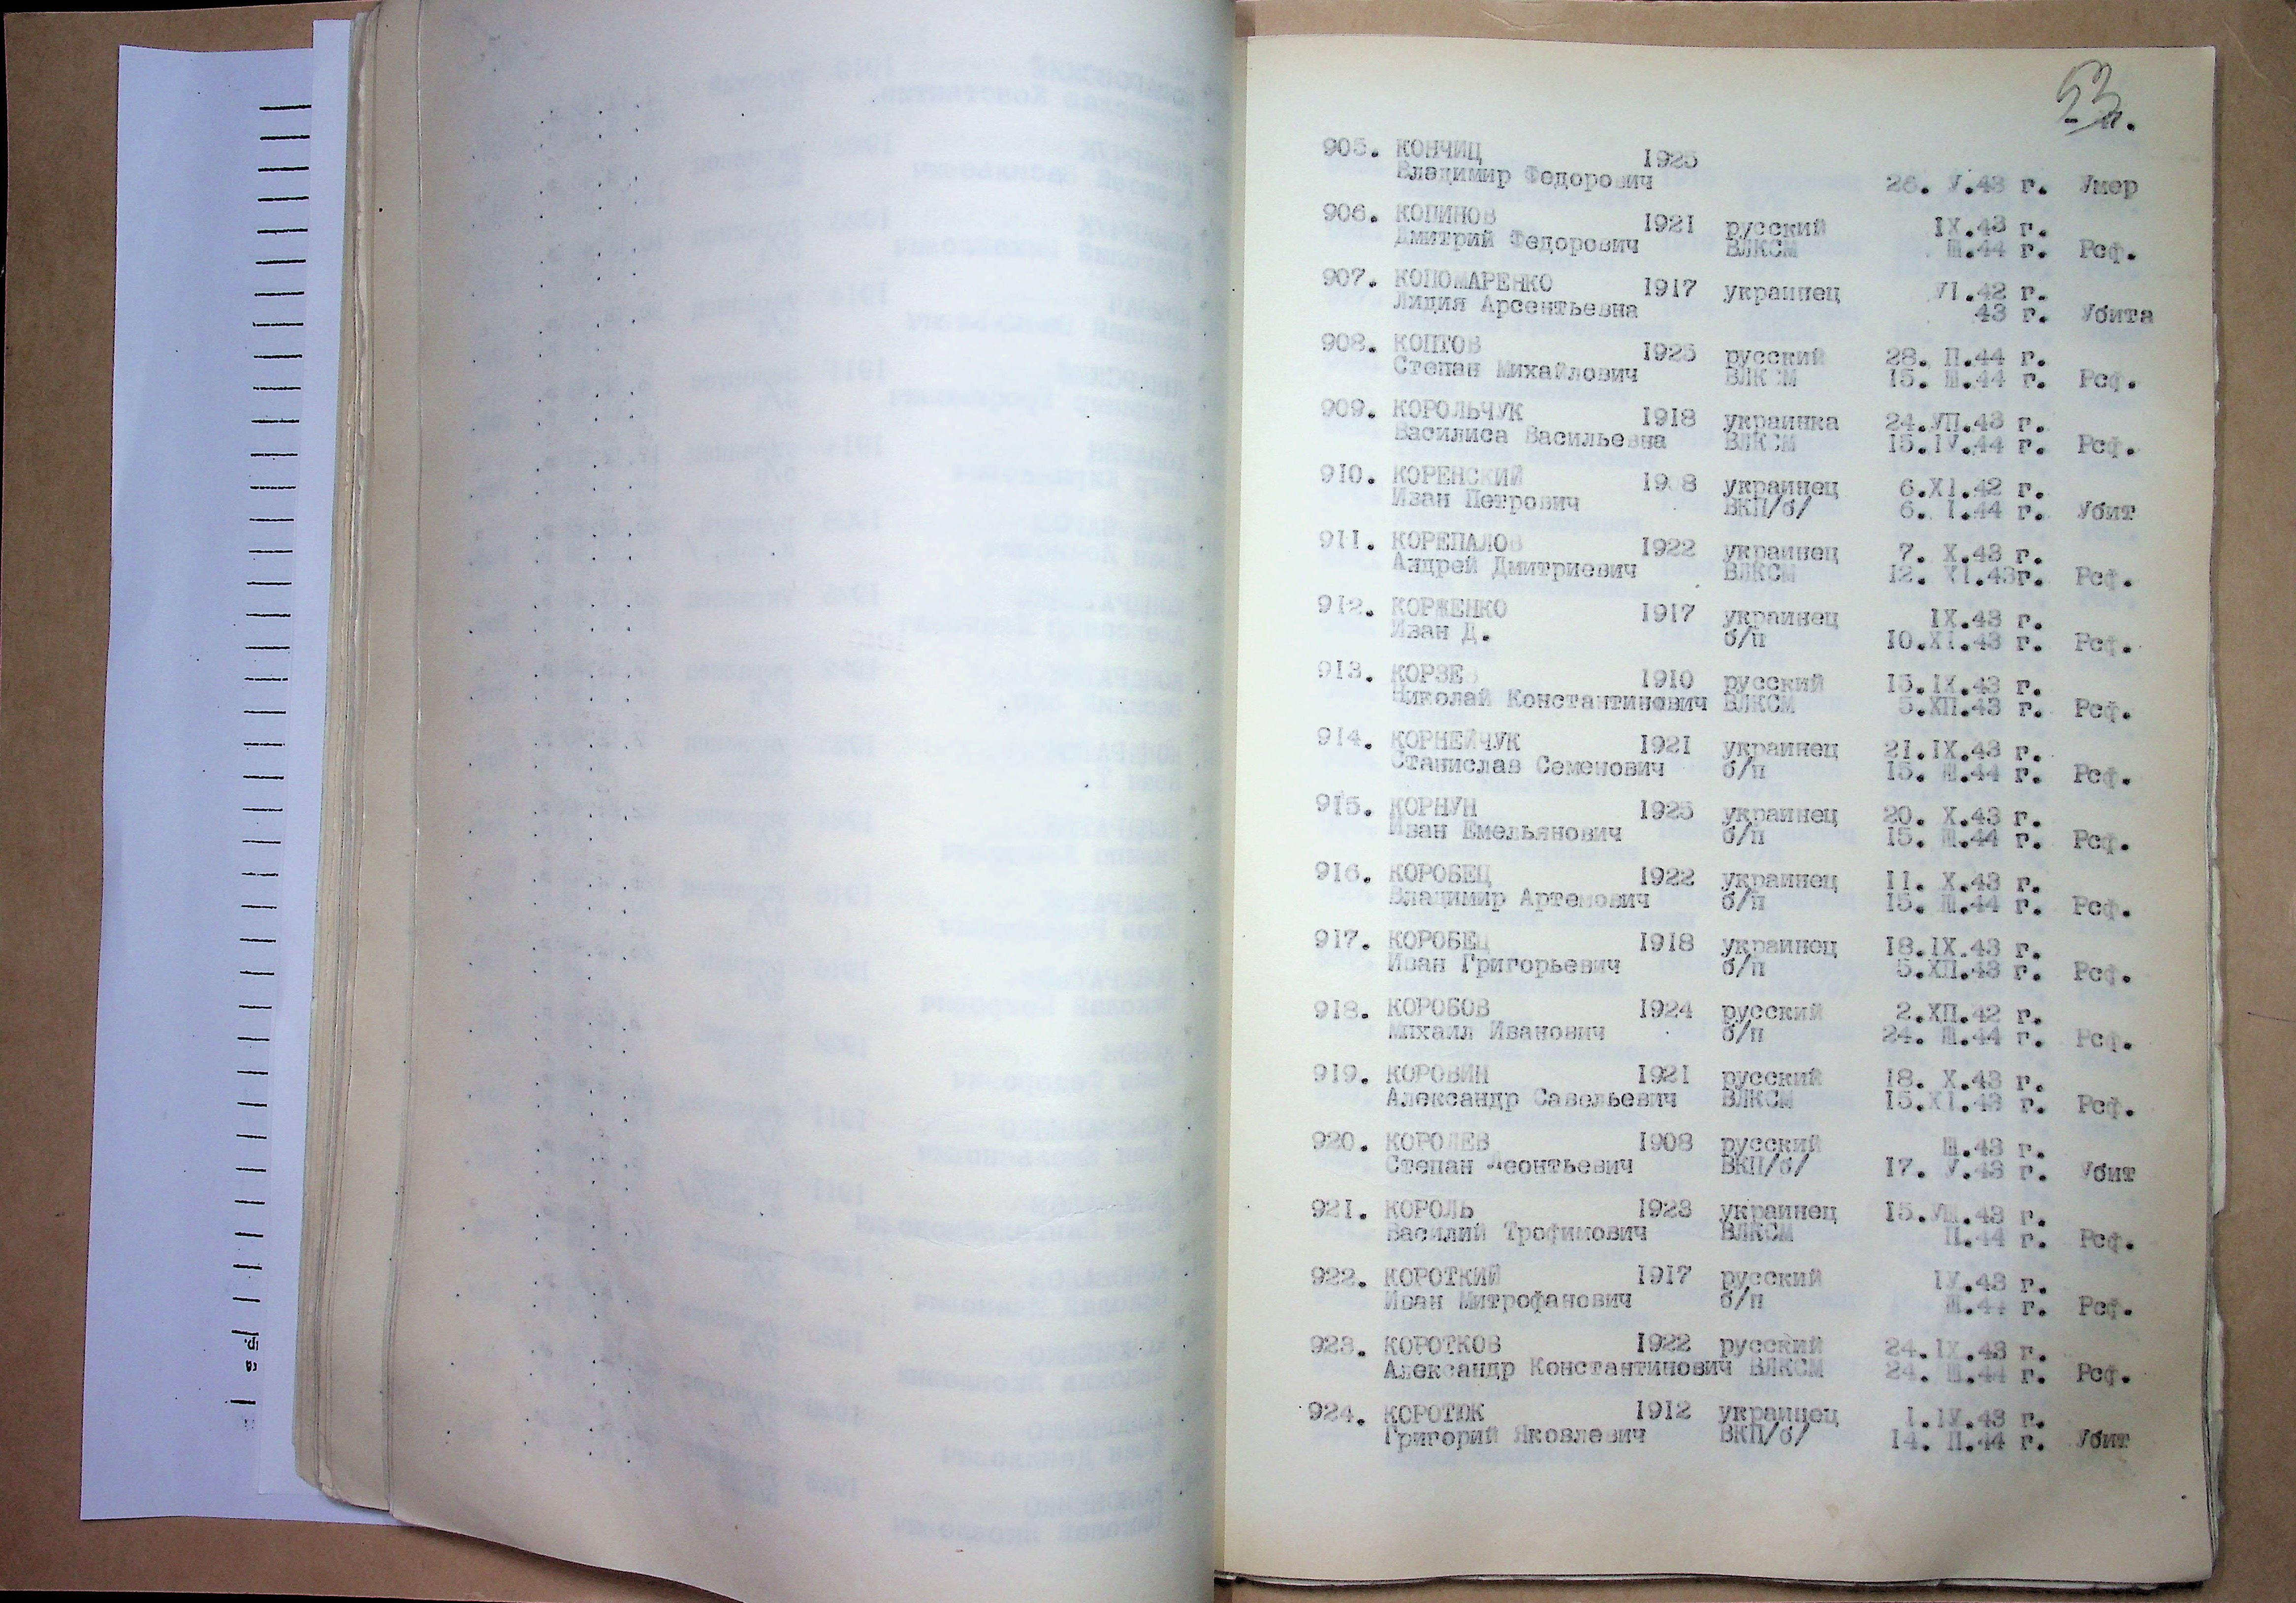 53
905. КОНЧИЦ 1925
Владимир Федорович 26. У.43 г. Умер
906. КОПИНОВ 1921 русский IX.43 г.
Дмитрий Федорович ВЛКСМ Ш.44 г. Рсф.
907. КОПОМАРЕНКО 1917 украинец УI.42 г.
Лидия Арсентьевна 43 г. Убита
908. КОПТОВ 1925 русский 28. П.44 г.
Степан Михайлович ВЛКСМ 15. Ш.44 г. Рсф.
909. КОРОЛЬЧУК 1918 украинка 24.УП.43 г.
Василиса Васильевна ВЛКСМ 15.IУ.44 г. Рсф.
910. КОРЕНСКИЙ 1908 украинец 6.XI.42 г.
Иван Петрович ВКП/б/ 6. I.44 г. Убит
911. КОРЕПАЛОВ 1922 украинец 7. X.43 г.
Андрей Дмитриевич ВЛКСМ 12. XI.43г. Рсф.
912. КОРЖЕНКО 1917 украинец IX.43 г.
Иван Д. б/п 10.XI.43 г. Рсф.
913. КОРЗЕ 1910 русский 15.IX.43 г.
Николай Константинович ВЛКСМ 5.ХП.43 г. Рсф.
914. КОРНЕЙЧУК 1921 украинец 21.IX.43 г.
Станислав Семенович б/п 15. Ш.44 г. Рсф.
915. КОРНУН 1925 украинец 20. X.43 г.
Иван Емельянович б/п 15. Ш.44 г. Рсф.
916. КОРОБЕЦ 1922 украинец 11. X.43 г.
Владимир Артемович б/п 15. Ш.44 г. Рсф.
917. КОРОБЕЦ 1918 украинец 18.IX.43 г.
Иван Григорьевич б/п 5.ХП.43 г. Рсф.
918. КОРОБОВ 1924 русский 2.ХП.42 г.
Михаил Иванович б/п 24. Ш.44 г. Рсф.
919. КОРОВИН 1921 русский 18. X.43 г.
Александр Савельевич ВЛКСМ 15.XI.43 г. Рсф.
920. КОРОЛЕВ 1908 русский Ш.43 г.
Степан Леонтьевич ВКП/б/ 17. У.43 г. Убит
921. КОРОЛЬ 1923 украинец 15.УШ.43 г.
Василий Трофимович ВЛКСМ П.44 г. Рсф.
922. КОРОТКИЙ 1917 русский IУ.43 г.
Иван Митрофанович б/п Ш.44 г. Рсф.
923. КОРОТКОВ 1922 русский 24.IX.43 г.
Александр Константинович ВЛКСМ 24. Ш.44 г. Рсф.
924. КОРОТЮК 1912 украинец I.IУ.43 г.
Григорий Яковлевич ВКП/б/ 14. П.44 г. Убит